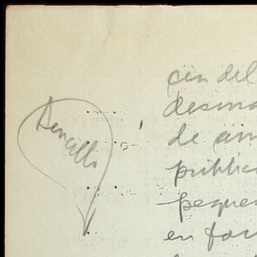 Sencillo
cia del
desma
de am
publica
peque
en for